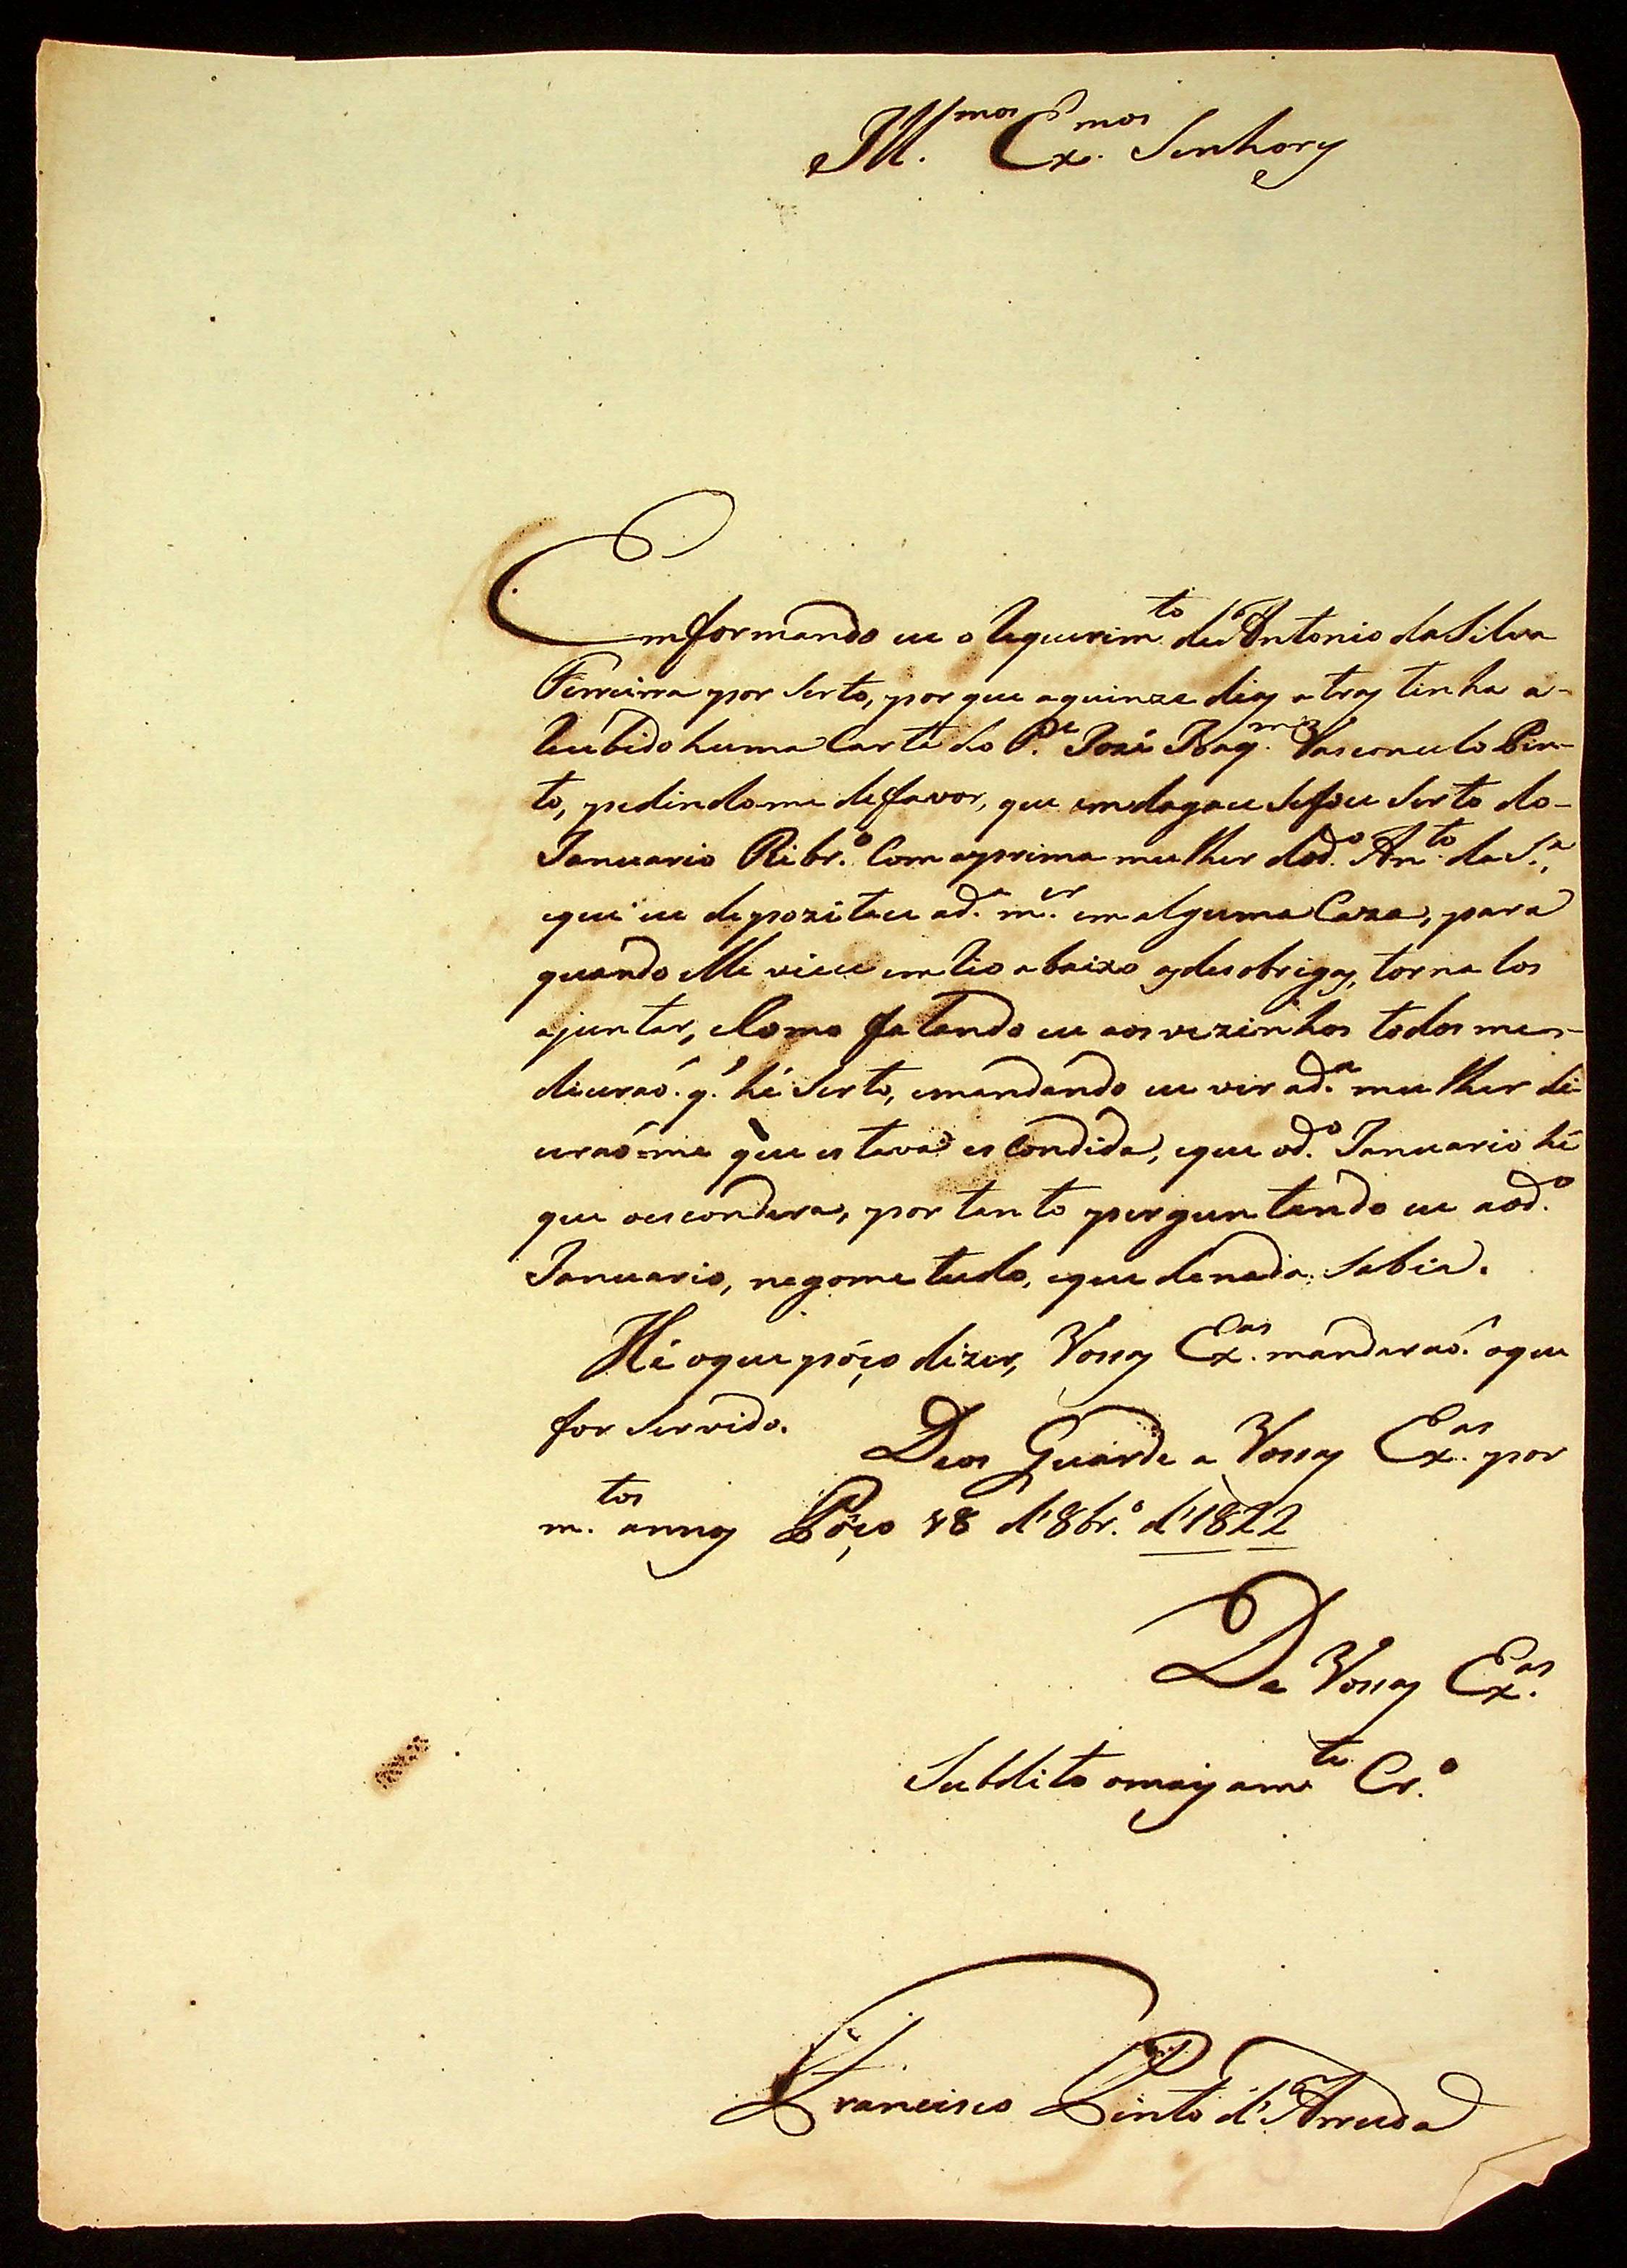 Ill.mos Ex.mos Senhores
Emformando eu o Requerim.to de Antonio da Silva
Ferreirra por serto, por que a quinze dias atras tinha a-
Reubido huma Carta do P.e José Joaq.m Vasconcelo Pin-
to, pedindo-me de favor, que emdagace se fou serto do-
Januario Ribr.º Com a prima mulher do d.º An.to da S.ª,
eque eu depozitace a d.ª m.er em alguma Caza, para
quando elle viece em Rio abaixo as desobrigas, tornalos
ajuntar, e Como falando eu aos vezinhos todos me-
diceraó. q.' hé serto, emandando eu vir a d.ª mulher di-
ceraó-me que estava escondida, eque o d.º Januario hé
que aescondera, por tanto perguntando eu ao d.º
Januario, negome tudo, eque denada sabia.
Hé oque póço dizer, Vossas Ex.as mandaraó. oque
for servido. Deos Guarde a Vossas Ex.as por
m.tos annos Póço 18 d'8br.º d'1822
De Vossas Ex.as
Subdito omais am.te Cr.º
Francisco Pinto d'Arruda